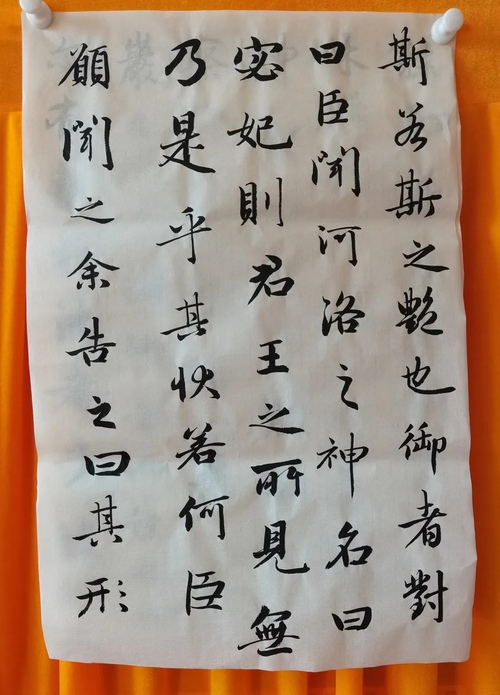 斯若斯之艷也御者對
曰臣聞河洛之神名曰
宓妃則君王之所見無
乃是乎其狀若何臣
願聞之余告之曰其形